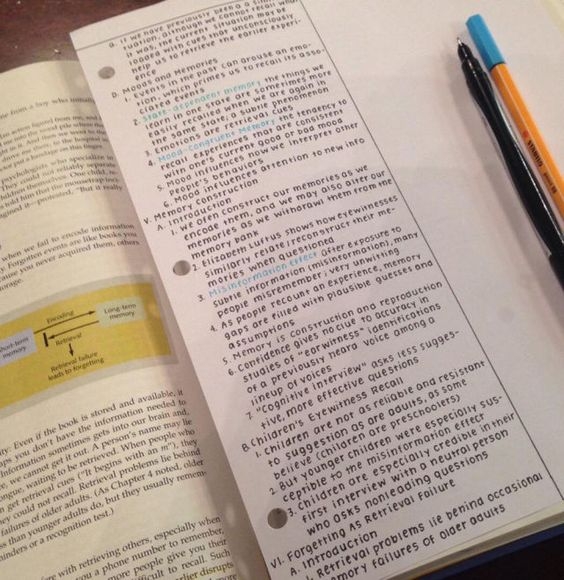 a. if we have previously been in a similar
tuation, although we cannot recall what
it was, the current situation may be
loaded with cues that unconsciously
help us to retrieve the earlier experi-
ence
D. Moods and Memories
1. Events in the past can arouse an emo-
tion which primes us to recall its asso-
ciated events
2. State-dependent memory the things we
learn in one state are sometimes more
easily recalled when we are again in
the same state; a subtle phenomenon
3. Emotions are retrieval cues
4. Mood-congruent Memory the tendency to
recall experiences that are consistent
with one's current good or bad mood
5. Mood influences how we interpret other
people's behaviors
6. Mood influences attention to new info
V. Memory Construction
A. Introduction
1. We often construct our memories as we
encode them, and we may also alter our
memories as we withdraw them from the
memory bank
2. Elizabeth Luftus shows how eyewitnesses
similarly relate/reconstruct their me-
mories when questioned
3. Misinformation Effect after exposure to
subtle information (misinformation), many
people misremember; very unwitting
4. As people recount an experience, memory
gaps are filled with plausible guesses and
assumptions
5. Memory is construction and reproduction
6. Confidence gives no clue to accuracy in
studies of "earwitness" identifications
of a previously heard voice among a
lineup of voices
7. "Cognitive interview" asks less sugges-
tive, more effective questions
B. Children's Eyewitness Recall
1. Children are not as reliable and resistant
to suggestion as are adults, as some
believe (children are preschoolers)
2. But younger children were especially sus-
ceptible to the misinformation effect
3. Children are especially credible in their
first interview with a neutral person
who asks nonleading questions
VI. Forgetting As Retrieval Failure
A. Introduction
Retrieval problems lie behind occasional
memory failures of older adults
me from a boy who initially
psychologists who specialize in
They could not reliably separate
children themselves. One child,
told him that the mousetrap
protested. "But it really
when we fail to encode information
Forgotten events are like books you
you never acquired them, others
storage.
Encoding
Short-term
memory
Long-term
memory
Retrieval
Retrieval failure
leads to forgetting
Even if the book is stored and available, it
you don't have the information needed to
information sometimes gets into our brain and,
we cannot get it out. A person's name may lie
tongue, waiting to be retrieved. When people who
get retrieval cues ("It begins with an m"), they
they could not recall. Retrieval problems lie behind
failures of older adults. (As Chapter 4 noted, older
than younger adults do, but they usually remem-
or a recognition test.)
with retrieving others, especially when
you a phone number to remember,
more people give you their
difficult to recall. Such
earlier disrupts
stabilo